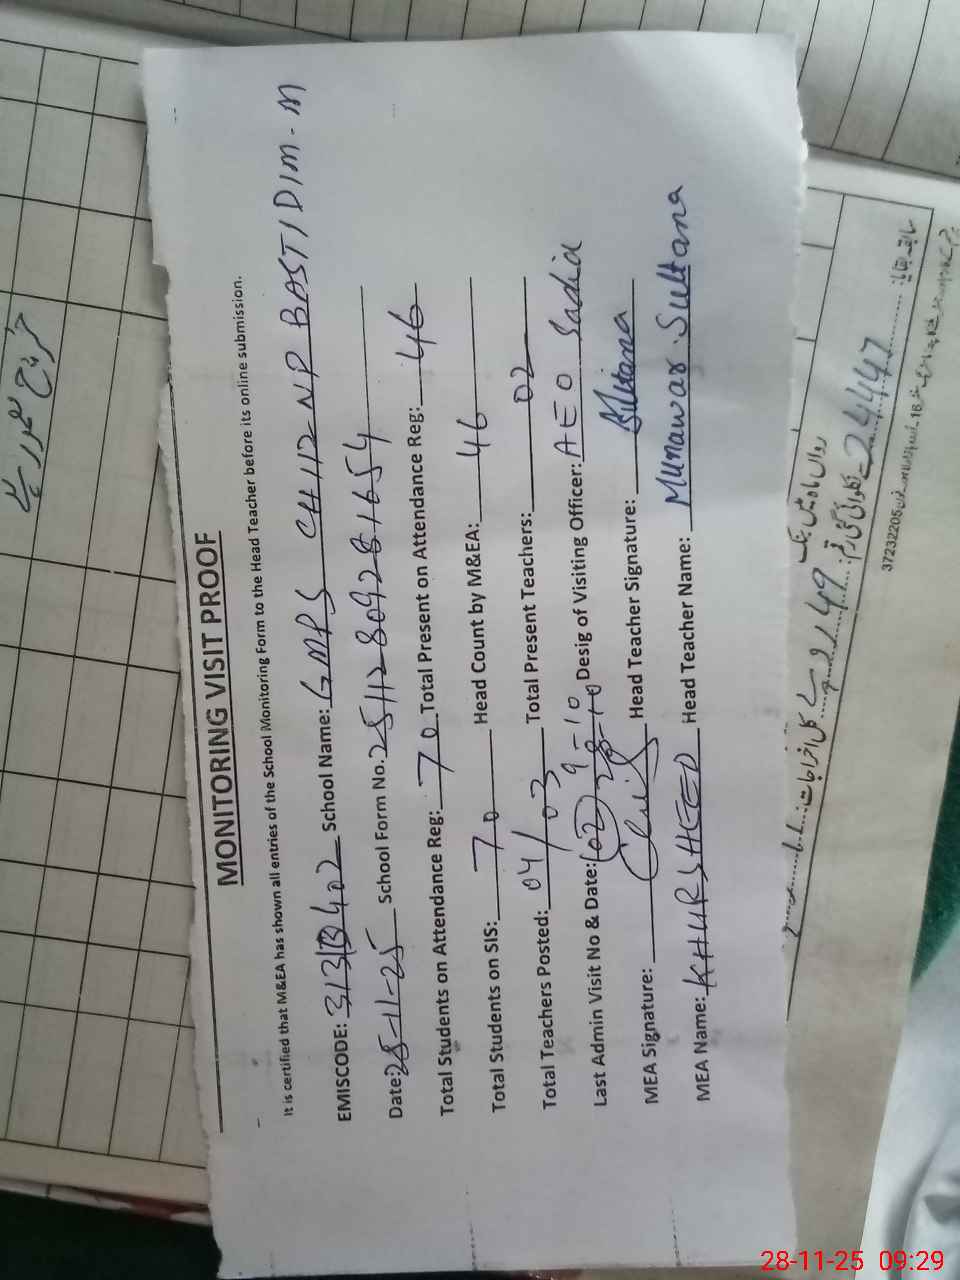 MONITORING VISIT PROOF
It is certified that M&EA has shown all entries of the School Monitoring Form to the Head Teacher before its online submission.
EMISCODE: 31313402 School Name: GMPS CH 112 NP BASTI DIM. M
Date: 28-11-25 School Form No. 2511280928 1654
Total Students on Attendance Reg: 70 Total Present on Attendance Reg: 46
Total Students on SIS: 70 Head Count by M&EA: 46
Total Teachers Posted: 04/03 Total Present Teachers: 02
Last Admin Visit No & Date: (02) 9-10 Desig of Visiting Officer: AEO Sadia
MEA Signature: Head Teacher Signature: Sultana
MEA Name: KHURSHEED Head Teacher Name: Munawar Sultana
24447
49
37232205
28-11-25 09:29